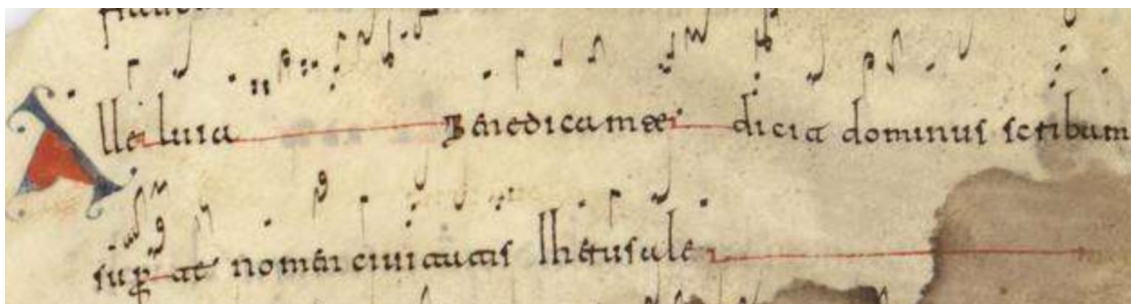 Alleluia Benedicam te dicit dominus scribam
suꝑ te nomen ciuitatis Iherusale